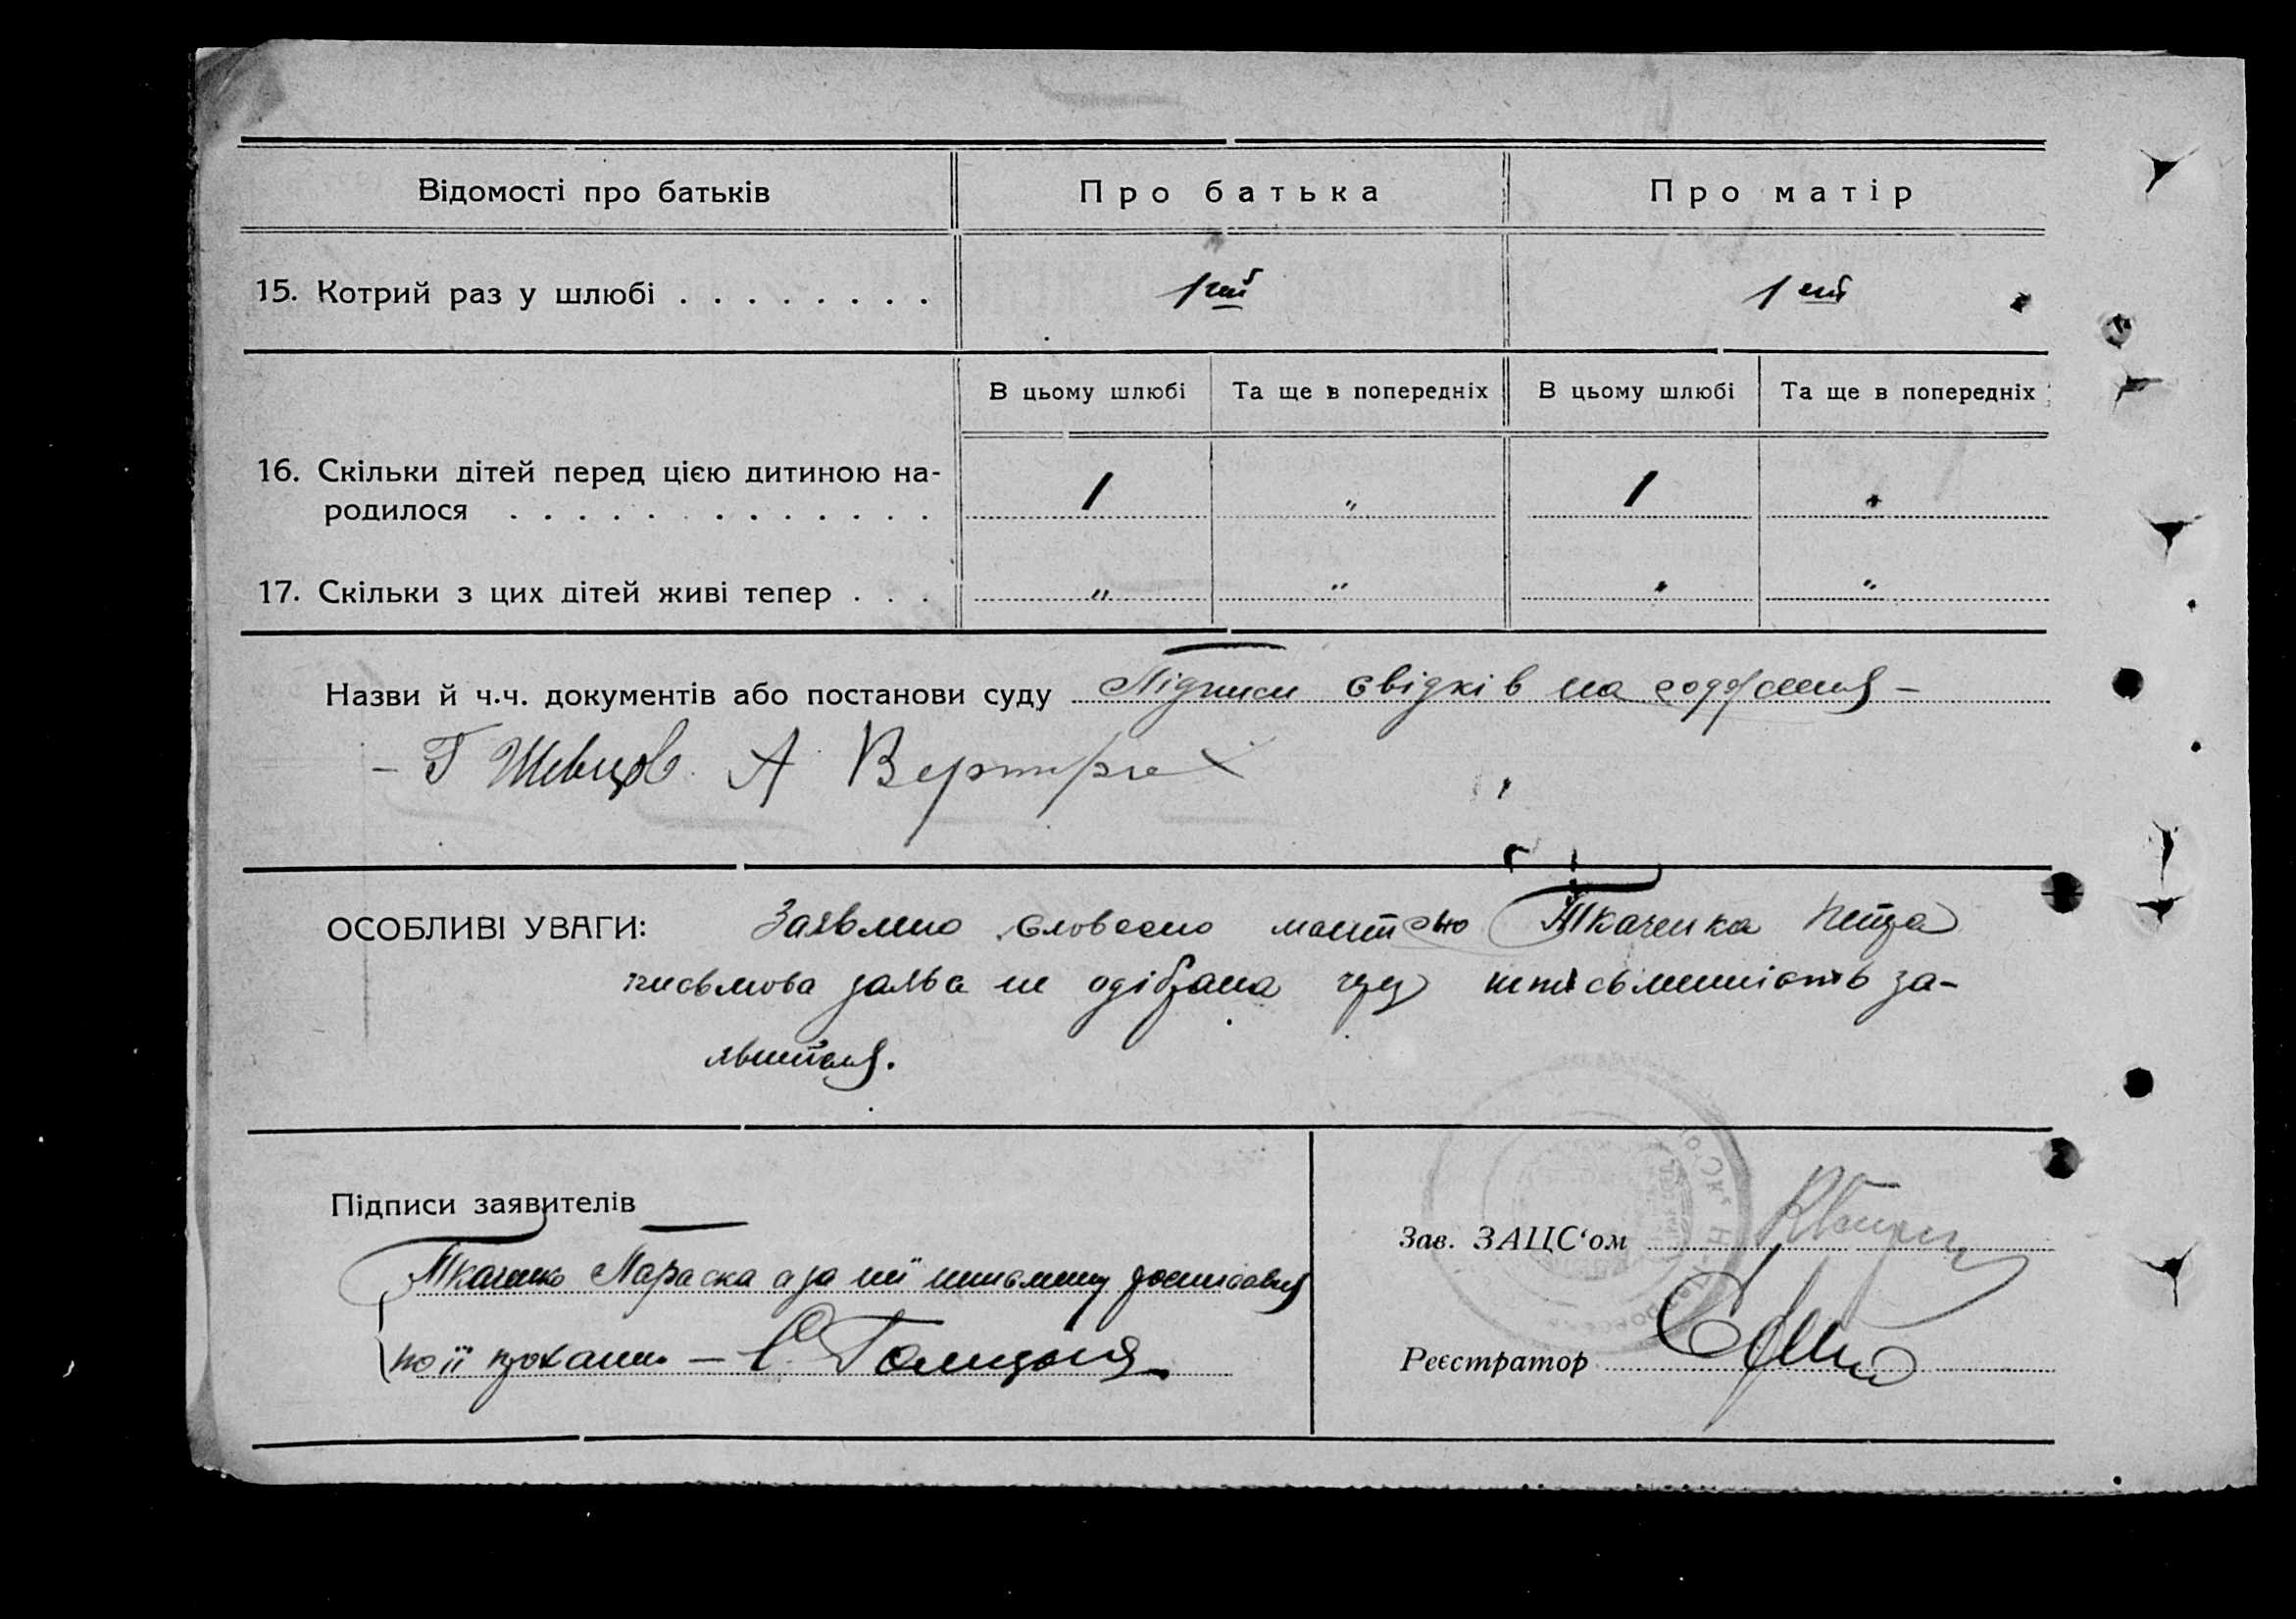 Відомості про батьків Про батька Про матір
15. Котрий раз у шлюбі . . . . . . . . 1ий 1ий
В цьому шлюбі Та ще в попередніх В цьому шлюбі Та ще в попередніх
16. Скільки дітей перед цією дитиною на-
родилося . . . . . . . . . . . . . 1 " 1 "
17. Скільки з цих дітей живі тепер . . . " " " "
Назви й ч.ч. документів або постанови суду Підписи свідків на
– Г Шевцов А
ОСОБЛИВІ УВАГИ: Заявлено словесно Ткаченка
письмова заява не одібрана через за-
явителя.
Підписи заявителів
Ткаченко Параска а за неї
по її прохання –
Зав. ЗАЦС‘ом
Реєстратор